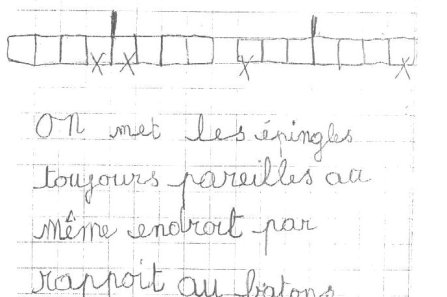 On met les épingles
toujours pareilles au
même endroit par
rapport au batons